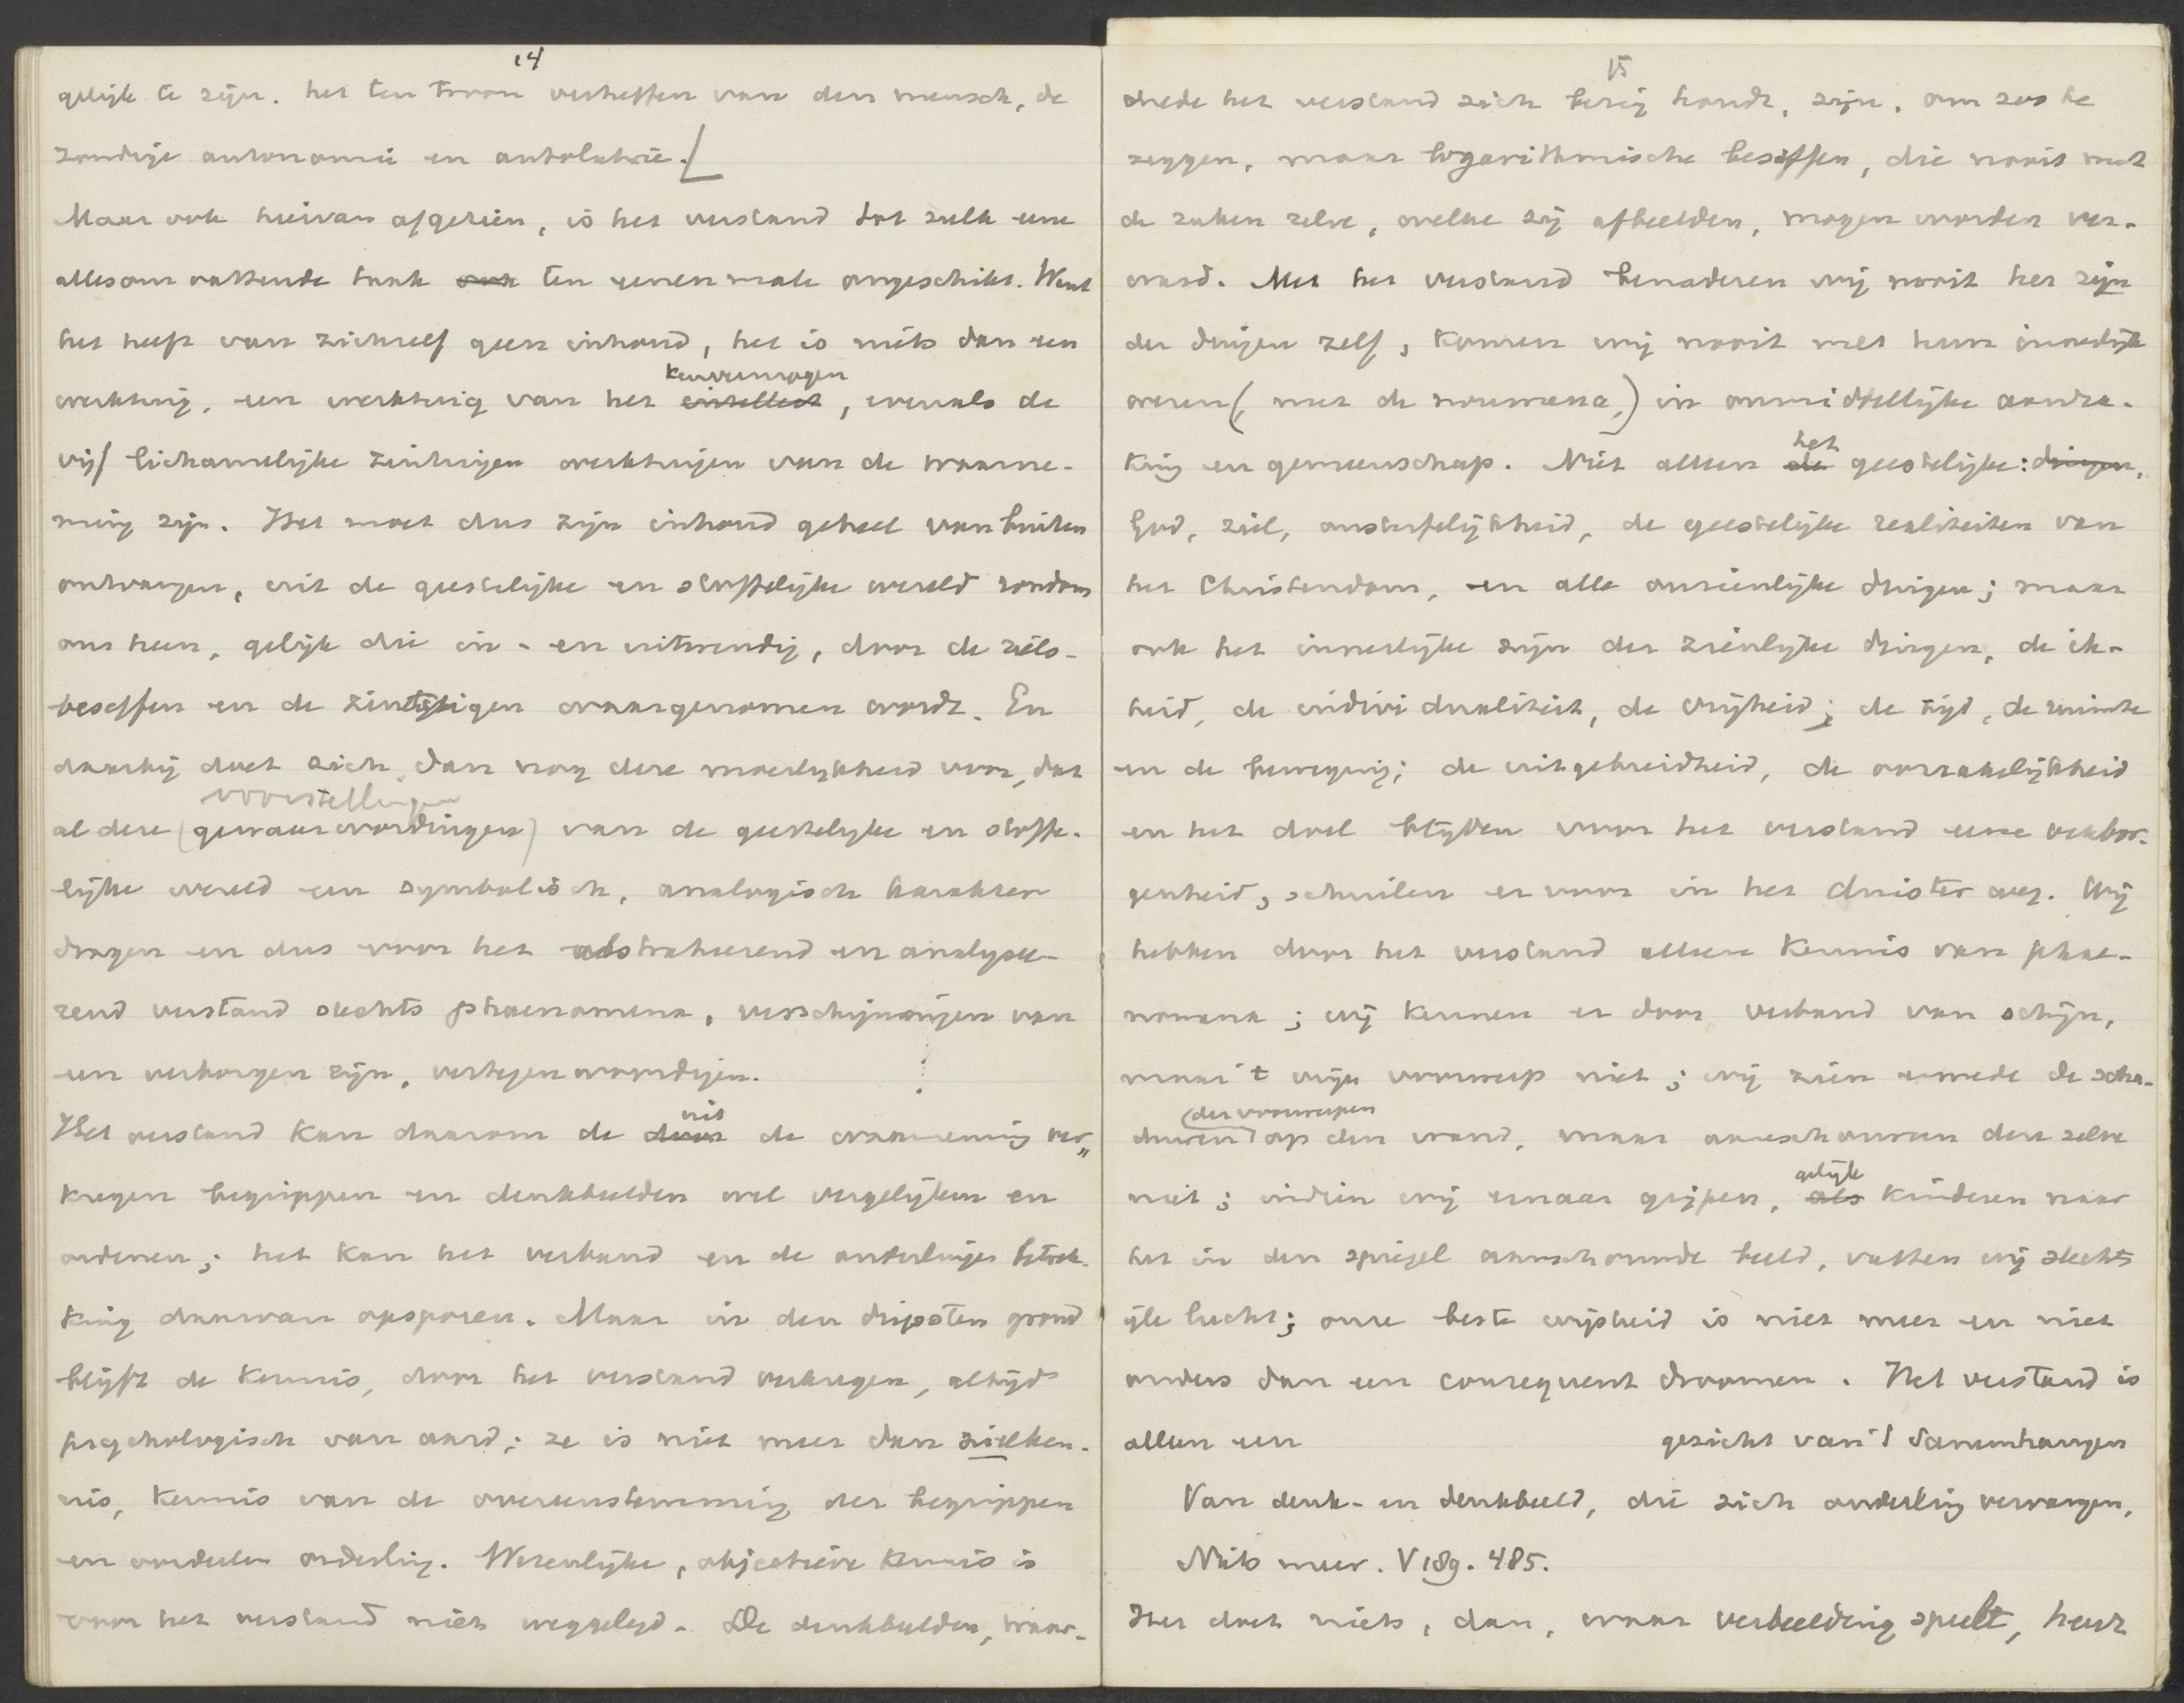 14
gelijk te zijn. het ten troon verheffen van den mensch, de
zondige autonomie en autolatrie.
Maar ook hiervan afgezien, is het verstand tot zulk eene
allesomvattende taak ten eenen male ongeschikt. Want
het heeft van zichzelf geen inhoud, het is niets dan een
werktuig, een werktuig van het intellect kenvermogen, evenals de
vijf lichamelijke zintuigen werktuigen van de waarne-
ming zijn. Het moet dus zijn inhoud geheel van buiten
ontvangen, uit de geestelijke en stoffelijke wereld rondom
ons heen, gelijk die in- en uitwendig, door de ziels-
beseffen en de zintuigen waargenomen wordt. En
daarbij doet zich dan nog deze moeilijkheid voor, dat
voorstellingen
al deze (gewaarwordingen) van de geestelijke en stoffe-
lijke wereld een symbolisch, analogisch karakter
dragen en dus voor het abstraheerend en analysee-
rend verstand slechts phaenomena, verschijningen van
een verborgen zijn, vertegenwoordigen.
Het verstand kan daarom de door uit de waarneming ver-
kregen begrippen en denkbeelden wel vergelijken en
ordenen; het kan het verband en de onderlinge betrek-
king daarvan opsporen. Maar in den diepsten grond
blijft de kennis, door het verstand verkregen, altijd
psychologisch van aard; ze is niet meer dan zielken-
nis, kennis van de overeenstemming der begrippen
en oordeelen onderling. Wezenlijke, objectieve kennis is
voor het verstand niet weggelegd. De denkbeelden, waar-
15
mede het verstand zich bezig houdt, zijn, om zoo te
zeggen, maar logarithmische beseffen, die nooit met
de zaken zelve, welke zij afbeelden, mogen worden ver-
ward. Met het verstand benaderen wij nooit het zijn
der dingen zelf, komen wij nooit met hun innerlijk
wezen (, met de noumena,) in onmiddellijke aanra-
king en gemeenschap. Niet alleen de het geestelijke: dingen,
God, ziel, onsterfelijkheid, de geestelijke realiteiten van
het Christendom, en alle onzienlijke dingen; maar
ook het innerlijke zijn der zienlijke dingen, de ik-
heid, de individualiteit, de vrijheid; de tijd, de ruimte
en de beweging; de uitgebreidheid, de oorzakelijkheid
en het doel blijven voor het verstand eene verbor-
genheid, schuilen er voor in het duister weg. Wij
hebben door het verstand alleen kennis van phae-
nomena; wij kennen er door verband van schijn,
maar 't wijn voorwerp niet; wij zien ermede de scha-
duwen (der voorwerpen) op den wand, maar aanschouwen deze zelve
niet; indien wij ernaar grijpen, als gelijk kinderen naar
het in den spiegel aanschouwde beeld, vatten wij slechts
ijle lucht; onze beste wijsheid is niet meer en niet
anders dan een consequent droomen. Het verstand is
alleen een gezicht van 't samenhangen
Van denk- en denkbeeld, die zich onderling vervangen,
Niets meer. V 189. 485.
Het doet niets, dan, waar verbeelding speelt, heur